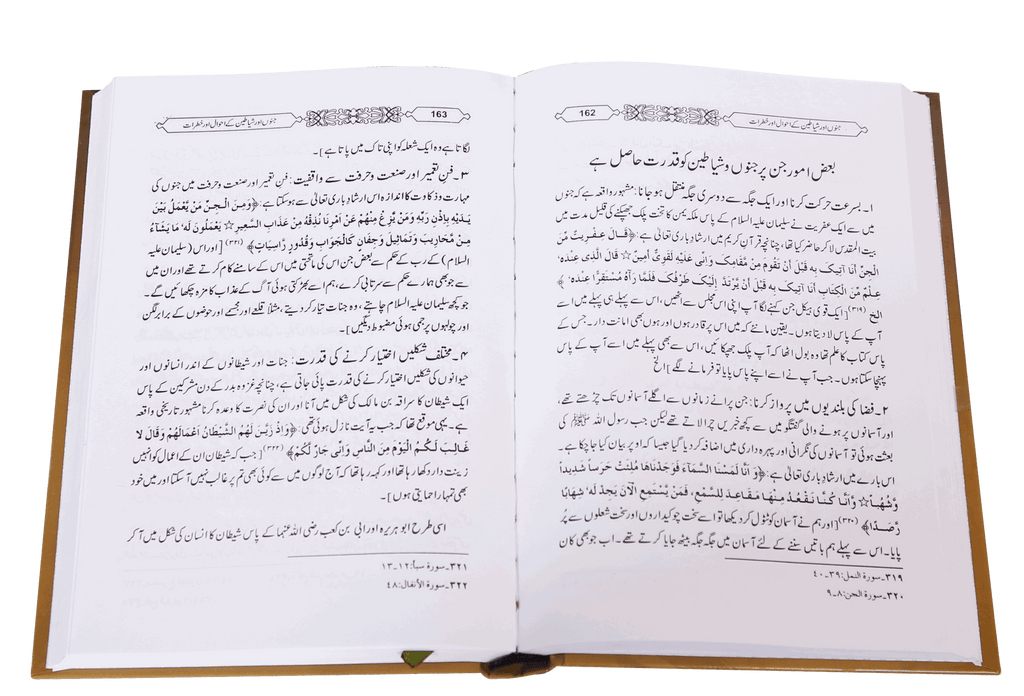 162
جنوں اور شیاطین کے احوال اور خطرات
بعض امور جن پر جنوں و شیاطین کو قدرت حاصل ہے
۱۔ بسرعت حرکت کرنا اور ایک جگہ سے دوسری جگہ منتقل ہو جانا: مشہور واقعہ ہے کہ جنوں
میں سے ایک عفریت نے سلیمان علیہ السلام کے پاس ملکہ یمن کا تخت پلک جھپکنے کی قلیل مدت میں
بیت المقدس لا کر حاضر کیا تھا، چنانچہ قرآن کریم میں ارشاد باری تعالیٰ ہے: ﴿قَالَ عِفْرِيتٌ مِّنَ
الْجِنِّ أَنَا آتِيكَ بِهِ قَبْلَ أَنْ تَقُومَ مِنْ مَّقَامِكَ وَإِنِّي عَلَيْهِ لَقَوِيٌّ أَمِينٌ☆ قَالَ الَّذِي عِنْدَهُ
عِلْمٌ مِّنَ الْكِتَابِ أَنَا آتِيكَ بِهِ قَبْلَ أَنْ يَرْتَدَّ إِلَيْكَ طَرْفُكَ فَلَمَّا رَآهُ مُسْتَقِرًّا عِنْدَهُ﴾
الخ (۳۱۹) [ایک قوی ہیکل جن کہنے لگا آپ اپنی اس مجلس سے اٹھیں، اس سے پہلے ہی پہلے میں اسے
آپ کے پاس لا دیتا ہوں۔ یقین مانئے کہ میں اس پر قادر ہوں اور ہوں بھی امانت دار۔ جس کے
پاس کتاب کا علم تھا وہ بول اٹھا کہ آپ پلک جھپکائیں، اس سے بھی پہلے میں اسے آپ کے پاس
پہنچا سکتا ہوں۔ جب آپ نے اسے اپنے پاس پایا تو فرمانے لگے] الخ
۲۔ فضا کی بلندیوں میں پرواز کرنا: جن پرانے زمانوں سے اگلے آسمانوں تک چڑھتے تھے،
اور آسمانوں پر ہونے والی گفتگو میں سے کچھ خبریں چرا لاتے تھے لیکن جب رسول اللہ ﷺ کی
بعثت ہوئی تو آسمانوں کی نگرانی اور پہرہ داری میں اضافہ کر دیا گیا جیسا کہ اوپر بیان کیا جا چکا ہے۔
اس بارے میں ارشاد باری تعالیٰ ہے: ﴿وَ أَنَّا لَمَسْنَا السَّمَآءَ فَوَجَدْنَاهَا مُلِئَتْ حَرَسًا شَدِيداً
وَّشُهُباً☆ وَّأَنَّا كُنَّا نَقْعُدُ مِنْهَا مَقَاعِدَ لِلسَّمْعِ، فَمَنْ يَّسْتَمِعِ الْآنَ يَجِدْ لَهُ شِهَابًا
رَّصَدًا﴾ (۳۲۰) [اور ہم نے آسمان کو ٹٹول کر دیکھا تو اسے سخت چوکیداروں اور سخت شعلوں سے پُر
پایا۔ اس سے پہلے ہم باتیں سننے کے لئے آسمان میں جگہ جگہ بیٹھ جایا کرتے تھے۔ اب جو بھی کان
۳۱۹۔ سورۃ النمل: ۳۹-۴۰
۳۲۰۔ سورۃ الجن: ۸-۹
163
جنوں اور شیاطین کے احوال اور خطرات
لگاتا ہے وہ ایک شعلہ کو اپنی تاک میں پاتا ہے]۔
۳۔ فن تعمیر اور صنعت و حرفت سے واقفیت: فن تعمیر اور صنعت و حرفت میں جنوں کی
مہارت و ذکاوت کا اندازہ اس ارشاد باری تعالیٰ سے ہو سکتا ہے: ﴿وَمِنَ الْجِنِّ مَنْ يَّعْمَلُ بَيْنَ
يَدَيْهِ بِإِذْنِ رَبِّهِ وَمَنْ يَّزِغْ مِنْهُمْ عَنْ أَمْرِنَا نُذِقْهُ مِنْ عَذَابِ السَّعِيرِ☆ يَعْمَلُونَ لَهُ مَا يَشَآءُ
مِنْ مَّحَارِيبَ وَتَمَاثِيلَ وَجِفَانٍ كَالْجَوَابِ وَقُدُورٍ رَّاسِيَاتٍ﴾ (۳۲۱) [اور اس (سلیمان علیہ
السلام) کے رب کے حکم سے بعض جن اس کی ماتحتی میں اس کے سامنے کام کرتے تھے اور ان میں
سے جو بھی ہمارے حکم سے سرتابی کرے، ہم اسے بھڑکتی ہوئی آگ کے عذاب کا مزہ چکھائیں گے۔
جو کچھ سلیمان علیہ السلام چاہتے، وہ جنات تیار کر دیتے، مثلاً قلعے اور مجسمے اور حوضوں کے برابر لگن
اور چولہوں پر جمی ہوئی مضبوط دیگیں]۔
۴۔ مختلف شکلیں اختیار کرنے کی قدرت: جنات اور شیطانوں کے اندر انسانوں اور
حیوانوں کی شکلیں اختیار کرنے کی قدرت پائی جاتی ہے، چنانچہ غزوہ بدر کے دن مشرکین کے پاس
ایک شیطان کا سراقہ بن مالک کی شکل میں آنا اور ان کی نصرت کا وعدہ کرنا مشہور تاریخی واقعہ
ہے۔ یہی موقع تھا کہ جب یہ آیت نازل ہوئی تھی: ﴿وَإِذْ زَيَّنَ لَهُمُ الشَّيْطَانُ أَعْمَالَهُمْ وَقَالَ لَا
غَالِبَ لَكُمُ الْيَوْمَ مِنَ النَّاسِ وَإِنِّي جَارٌ لَّكُمْ﴾ (۳۲۲) [جب کہ شیطان ان کے اعمال کو انہیں
زینت دار دکھا رہا تھا اور کہہ رہا تھا کہ آج لوگوں میں سے کوئی بھی تم پر غالب نہیں آ سکتا اور میں خود
بھی تمہارا حمایتی ہوں]۔
اسی طرح ابو ہریرہ اور ابی بن کعب رضی اللہ عنہما کے پاس شیطان کا انسان کی شکل میں آ کر
۳۲۱۔ سورۃ سبأ: ۱۲-۱۳
۳۲۲۔ سورۃ الأنفال: ۴۸